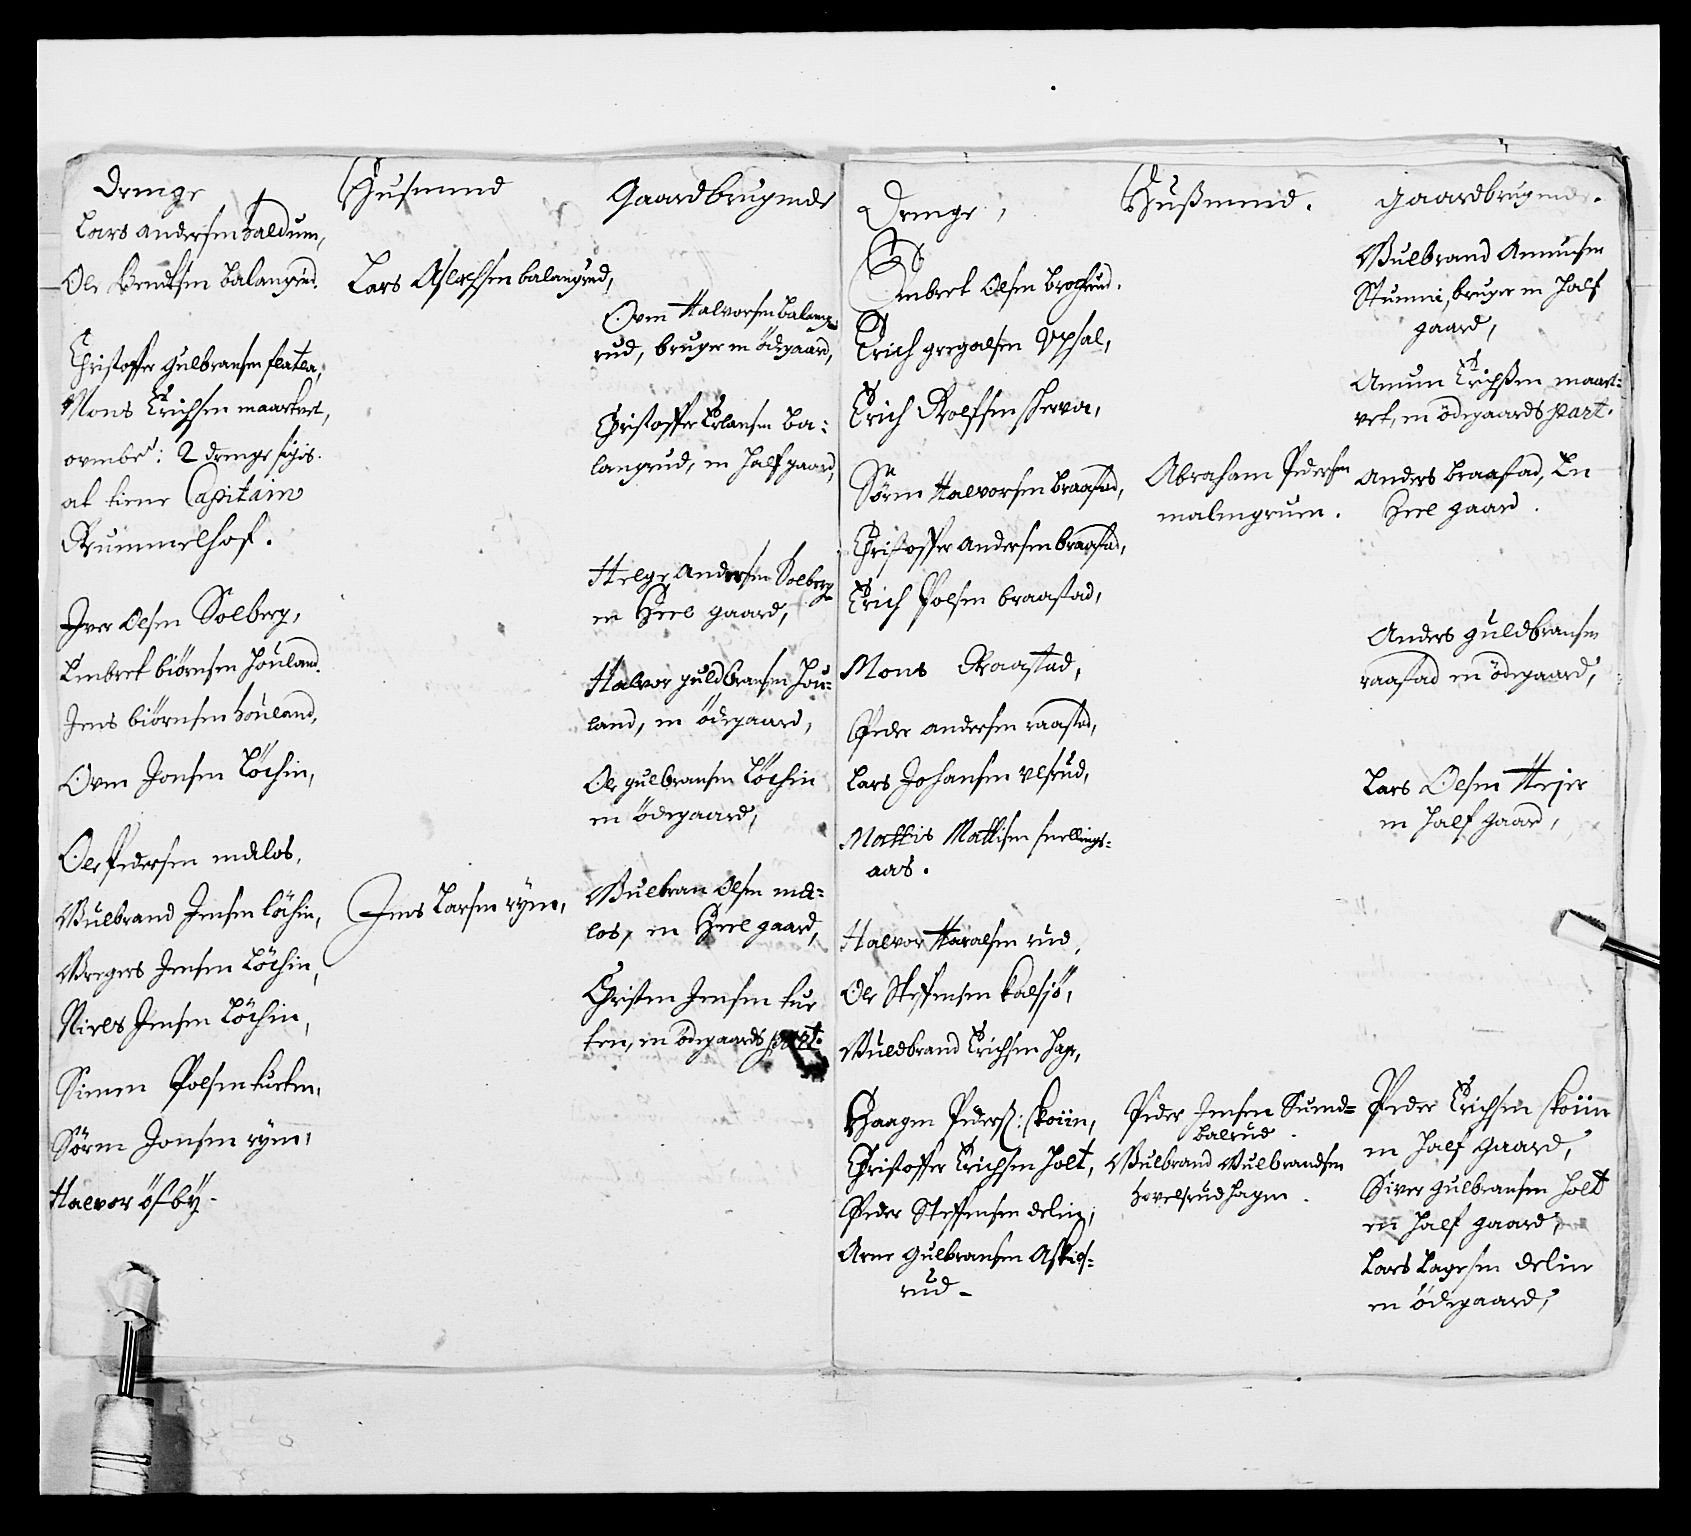 Drenge
Lars Andersen Baldum,
Ole Bentsen Balangrud.
Christoffer Gulbransen flatla,
Mons Erichsen maarkvet,
ovenbe: 2 drenge siges
at tiene Capitain
Rummelhof.
Iver Olsen Solberg,
Embret biörnsen houland.
Jens biörnsen houland,
Oven Jonsen Löchin,
Ole Pedersen melos,
Gulbrand Jensen löchin,
Gregers Jensen Löchin,
Niels Jensen Löchin,
Simen Polsen kurten,
Sören Jonsen ryen,
Halvor öfby.
Husmend
Lars Aslachsen balangrud,
Jens Larsen ryen,
Gaardbrugende
Oven Halvorsen balang-
rud, bruger en ödegaard,
Christoffer Erlansen Ba-
langrud, en half gaard,
Helge Andersen Solberg
en Heel gaard,
Halvor guldbransen hou-
land, en ödegaard,
Ole gulbransen Löchin
en ödegaard,
Gulbran Olsen me-
los, en Heel gaard,
Christen Jensen kur
ten, en ödegaards part.
Drenge,
Embret Olsen brochrud.
Erich gregolsen Opsal,
Erich Rolfsen sterva,
Sören Halvorsen braastad,
Christoffer andersen braastad,
Erich Polsen braastad,
Mons Raastad,
Peder andersen raastad,
Lars Johansen ulsrud,
Mattis Mattisen snellings-
aas.
Halvor Haralsen rud,
Ole Steffensen kalsjö,
Guldbrand Erichsen hage,
Haagen Peders: skoiin,
Christoffer Erichsen holt,
Peder Steffensen delin,
Arne Gulbransen Askies-
rud
Hußmend.
Abraham Pedersen
malengruen.
Peder Jensen Sund-
balrud.
Gulbrand Gulbrandsen
hovelsrudhagen.
gaardbrugende.
Gulbrand Amunsen
Stumni, bruger en half
gaard,
Amun Erichsen maark-
vet, en ödegaards part.
Anders braastad, En
Heel gaard.
Anders guldbransen
raastad en ödegaard,
Lars Olsen Hejer
en half gaard,
Peder Erichsen skoiin
en half gaard,
Siver gulbransen holt
en half gaard,
Lars Lagesen delin
en ödegaard,